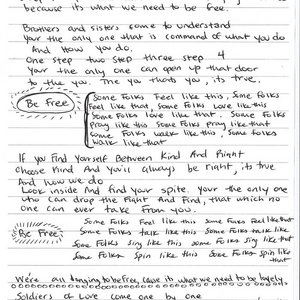 because its what we need to be free.
Brothers and sisters come to understand
Your the only one that is command of what you do
And How you do.
One step two step three step 4
Your the only one can open up that door
to the you. The you thats you, its true.
Be Free
Some Folks Feel like this, Some Folks
Feel like that, Some Folks Love like this
Some Folks love like that. Some Folks
Pray like this Some Folks pray like that
Some Folks walk like this, Some folks
walk like that
If you find Yourself Between Kind And Right
Choose Kind And You'll always be right, its true
And how we do
Look inside And find your spite. your the only one
who can drop the Fight And find, that which no
one can ever take From you.
Be Free
Some Folks Feel like this Some Folks Feel like that
Some Folks talk like this Some Folks talk like
Some Folks sing like this Some folks sing like that
Some Folks Spin like this Some Folks Spin like
that
We're all longing to be free, cause its what we need to be
Soldiers of Love come one by one